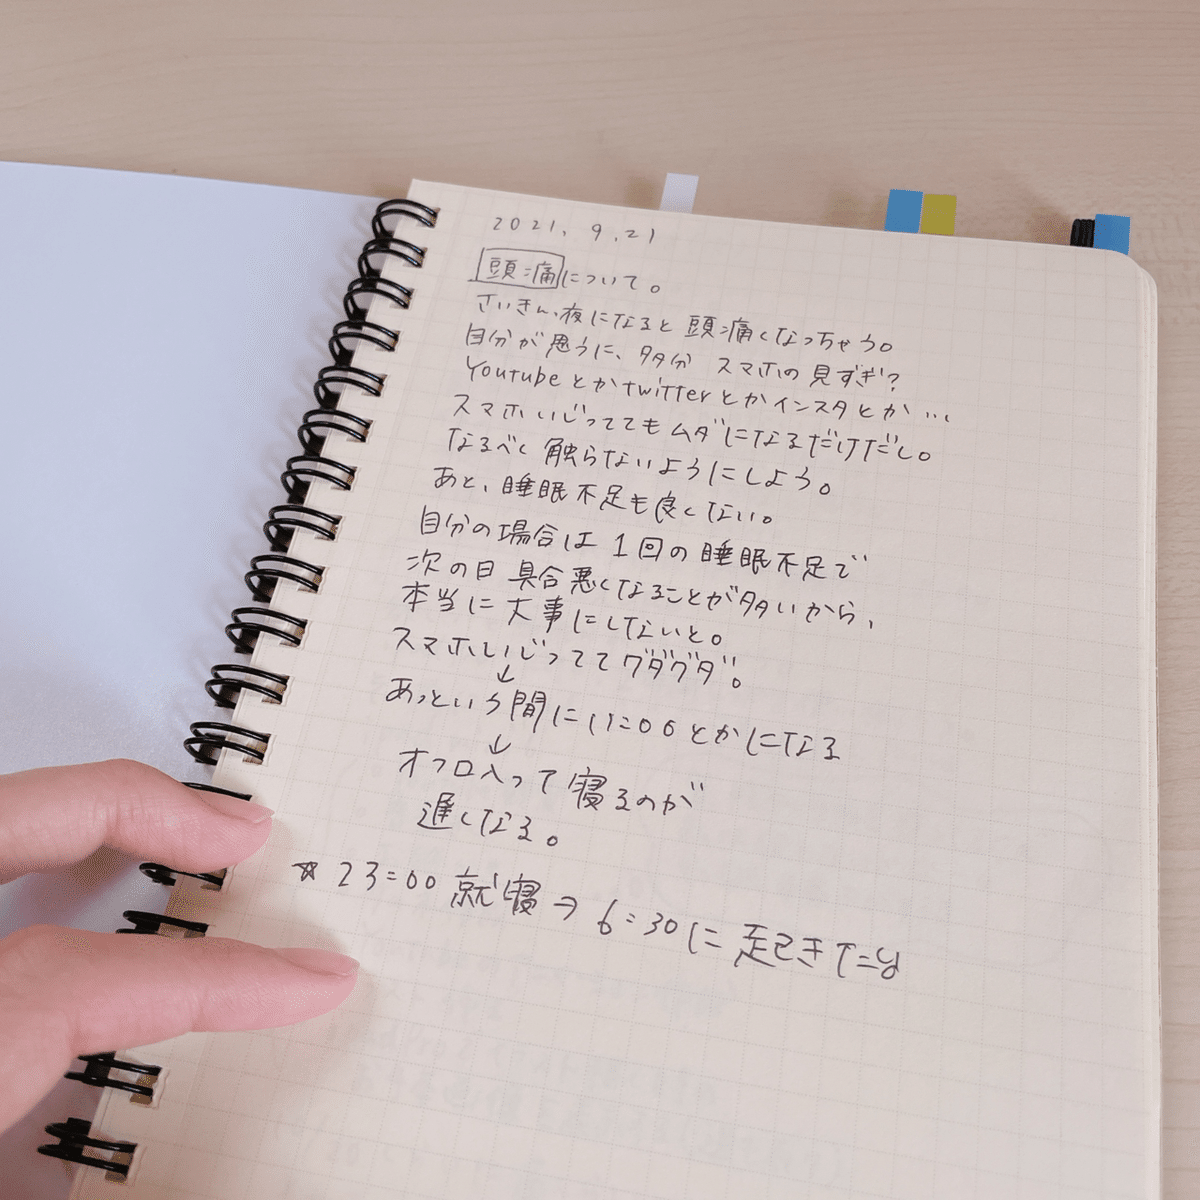 2021. 9. 21
頭痛について。
さいきん、夜になると 頭痛くなっちゃう。
自分が思うに、多分 スマホの見すぎ?
Youtubeとかtwitterとかインスタとか...
スマホいじっててもムダになるだけだし。
なるべく触らないようにしよう。
あと、睡眠不足も良くない。
自分の場合は1回の睡眠不足で
次の日 具合悪くなることが多いから、
本当に大事にしないと。
スマホいじっててグダグダ。
↓
あっという間に11:00とかになる
↓
オフロ入って寝るのが
遅くなる。
☆ 23:00 就寝→ 6:30に起きたy